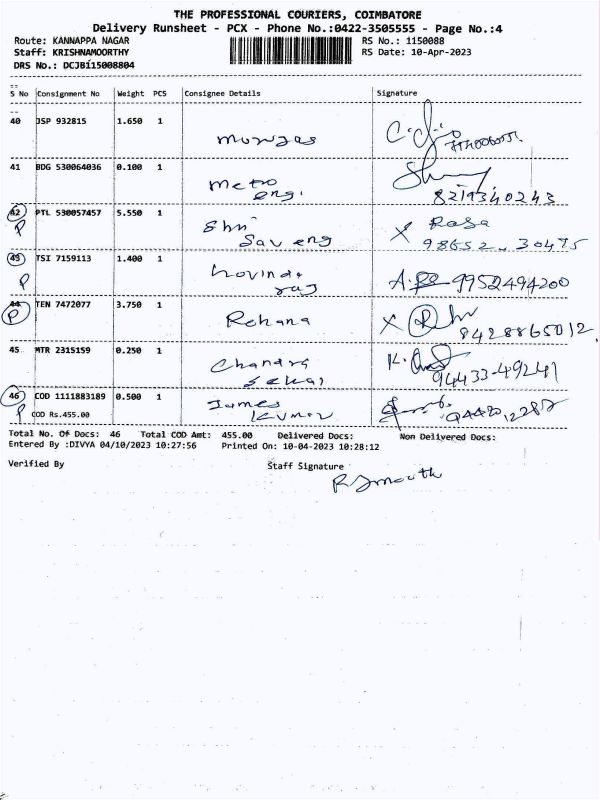 THE PROFESSIONAL COURIERS, COIMBATORE
Delivery Runsheet - PCX - Phone No.:0422-3505555 - Page No.:4
Route: KANNAPPA NAGAR RS No.: 1150088
Staff: KRISHNAMOORTHY RS Date: 10-Apr-2023
DRS No.: DCJBI15008804
S No Consignment No Weight PCS Consignee Details Signature
40 JSP 932815 1.650 1
41 BDG 530064036 0.100 1 Metro
eng. 8219340243
42 PTL 530057457 5.550 1 Shri X Raja
P Sav eng 98652 - 30475
43 TSI 7159113 1.400 1 Govinda
P raj 9952494200
44 TEN 7472077 3.750 1 Rohana X
P 8428865012
45 MTR 2315159 0.250 1 Chandra
Sekar 94433-49241
46 COD 1111883189 0.500 1 James
P COD Rs.455.00 Kumar
Total No. Of Docs: 46 Total COD Amt: 455.00 Delivered Docs: Non Delivered Docs:
Entered By :DIVYA 04/10/2023 10:27:56 Printed On: 10-04-2023 10:28:12
Verified By Staff Signature